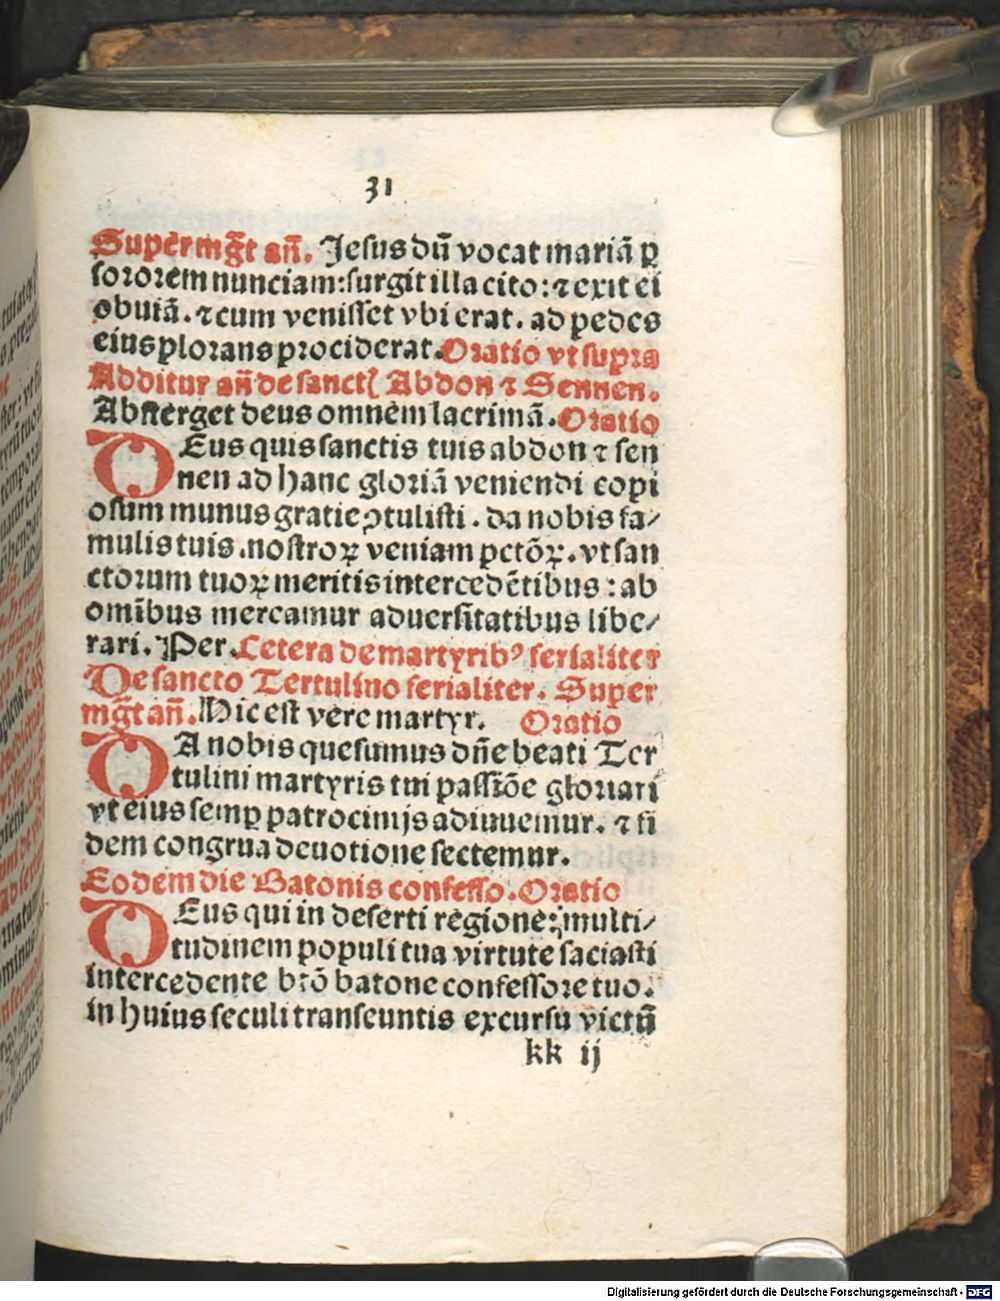 31
Supermg̅t an̄. Jesus dū vocat mariā ꝑ
sororem nunciam: surgit illa cito: ⁊ exit ei
obuiā. ⁊ cum venisset vbi erat. ad pedes
eius plorans prociderat. Oratio vt supra
Additur an̄ de sanctꝭ Abdon ⁊ Sennen.
Absterget deus omnem lacrimā. Oratio
DEus qui sanctis tuis abdon ⁊ sen
nen ad hanc gloriā veniendi copi
osum munus gratie ꝯtulisti. da nobis fa/
mulis tuis. nostroꝝ veniam pctōꝝ. vt san
ctorum tuoꝝ meritis intercedētibus: ab
omībus mereamur aduersitatibus libe/
rari. Per. Cetera de martyribꝰ ferialiter
De sancto Tertulino ferialiter. Super
mg̅t an̄. Hic est vere martyr. Oratio
DA nobis quesumus dn̄e beati Ter
tulini martyris tui passiōe gloriari
vt eius semꝑ patrocinijs adiuuemur. ⁊ fi
dem congrua deuotione sectemur.
Eodem die Batonis confesso. Oratio
DEus qui in deserti regione: multi/
tudinem populi tua virtute saciasti
intercedente btō batone confessore tuo.
in huius seculi transeuntis excursu victū
kk ij
Digitalisierung gefördert durch die Deutsche Forschungsgemeinschaft - DFG